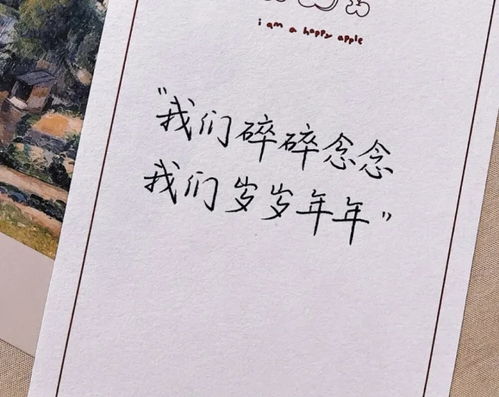 i am a happy apple
"我们碎碎念念
我们岁岁年年"